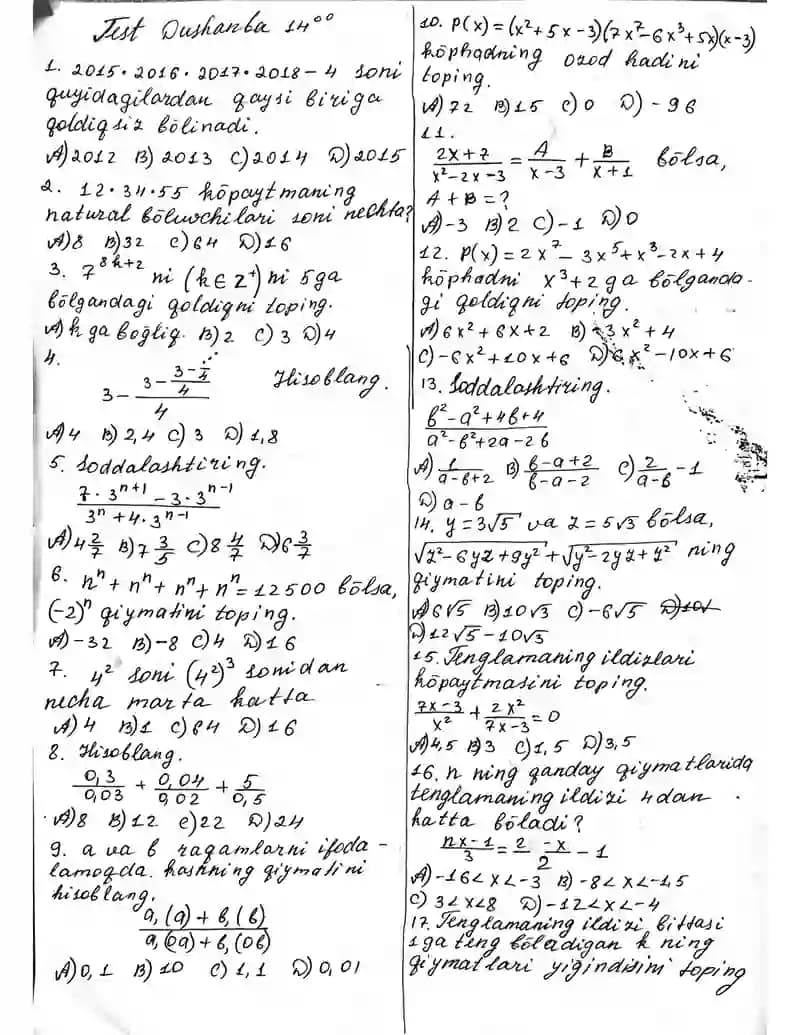 Test Dushanba 14⁰⁰
1. 2015·2016·2017·2018-4 soni
quyidagilardan qaysi biriga
qoldiqsiz bölinadi.
A) 2012 B) 2013 C) 2014 D) 2015
2. 12·34·55 köpaytmaning
natural böluvchilari soni nechta?
A) 8 B) 32 C) 64 D) 16
3. 7^(8k+2) ni (k∈Z⁺) ni 5ga
bölgandagi qoldiqni toping.
A) k ga boğliq. B) 2 C) 3 D) 4
4.
3 - (3 - (3 - 3/4 ⋰)/4)/4 Hisoblang.
A) 4 B) 2,4 C) 3 D) 1,8
5. Soddalashtiring.
(7·3^(n+1) - 3·3^(n-1))/(3^n + 4·3^(n-1))
A) 4 2/7 B) 7 3/5 C) 8 4/7 D) 6 3/7
6. n^n + n^n + n^n + n^n = 12500 bölsa,
(-2)^n qiymatini toping.
A) -32 B) -8 C) 4 D) 16
7. 4² soni (4²)³ sonidan
necha marta katta
A) 4 B) 1 C) 64 D) 16
8. Hisoblang.
0,3/0,03 + 0,04/0,02 + 5/0,5
A) 8 B) 12 C) 22 D) 24
9. a va b raqamlarni ifoda-
lamoqda. kasrning qiymatini
hisoblang.
(a,(a) + b,(b))/(a,(0a) + b,(0b))
A) 0,1 B) 10 C) 1,1 D) 0,01
10. P(x) = (x²+5x-3)(7x⁷-6x³+5x)(x-3)
köphadning ozod hadini
toping.
A) 72 B) 15 C) 0 D) -96
11.
(2x+7)/(x²-2x-3) = A/(x-3) + B/(x+1) bölsa,
A + B = ?
A) -3 B) 2 C) -1 D) 0
12. P(x) = 2x⁷ - 3x⁵ + x³ - 2x + 4
köphadni x³+2 ga bölganda-
gi qoldiqni toping.
A) 6x²+6x+2 B) -3x²+4
C) -6x²+10x+6 D) 6x²-10x+6
13. Soddalashtiring.
(b²-a²+4b+4)/(a²-b²+2a-2b)
A) 1/(a-b+2) B) (b-a+2)/(b-a-2) C) 2/(a-b) -1
D) a-b
14. y = 3√5 va z = 5√3 bölsa,
√(z²-6yz+9y²) + √(y²-2yz+z²) ning
qiymatini toping.
A) 6√5 B) 10√3 C) -6√5
D) 12√5 - 10√3
15. Tenglamaning ildizlari
köpaytmasini toping.
(7x-3)/x² + 2x²/(7x-3) = 0
A) 4,5 B) 3 C) 1,5 D) 3,5
16. n ning qanday qiymatlarida
tenglamaning ildizi 4dan
katta böladi?
(nx-1)/3 = (2-x)/2 - 1
A) -16<x<-3 B) -8<x<-1,5
C) 3<x<8 D) -12<x<-4
17. Tenglamaning ildizi bittasi
1ga teng böladigan k ning
qiymatlari yiğindisini toping